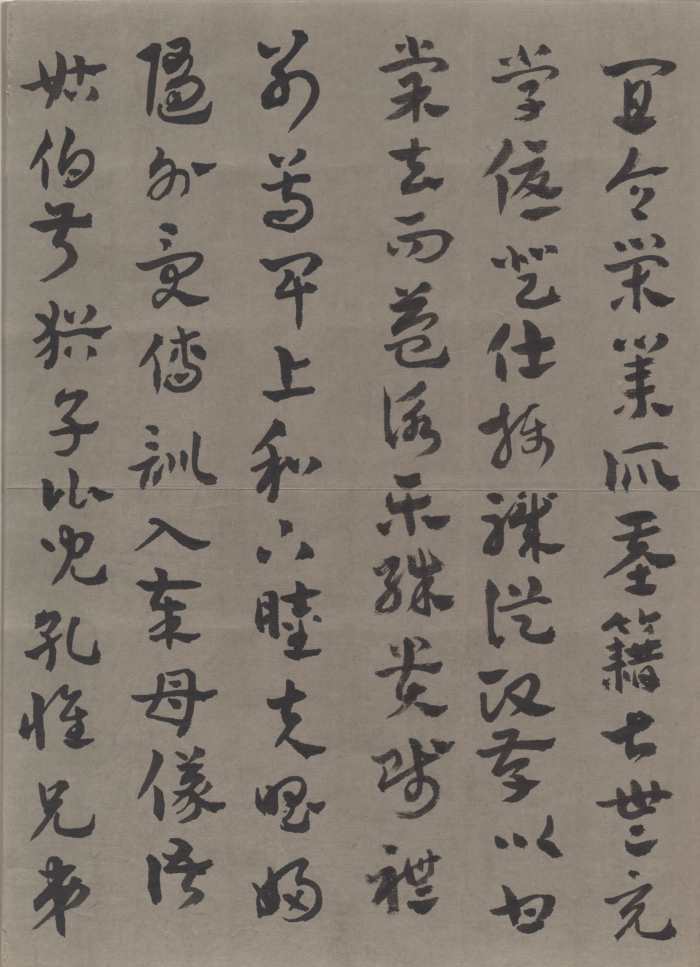 宜令榮業所基籍甚無竟
學優登仕攝職從政存以甘
棠去而益詠樂殊貴賤禮
別尊卑上和下睦夫唱婦
隨外受傅訓入奉母儀諸
姑伯叔猶子比兒孔懷兄弟